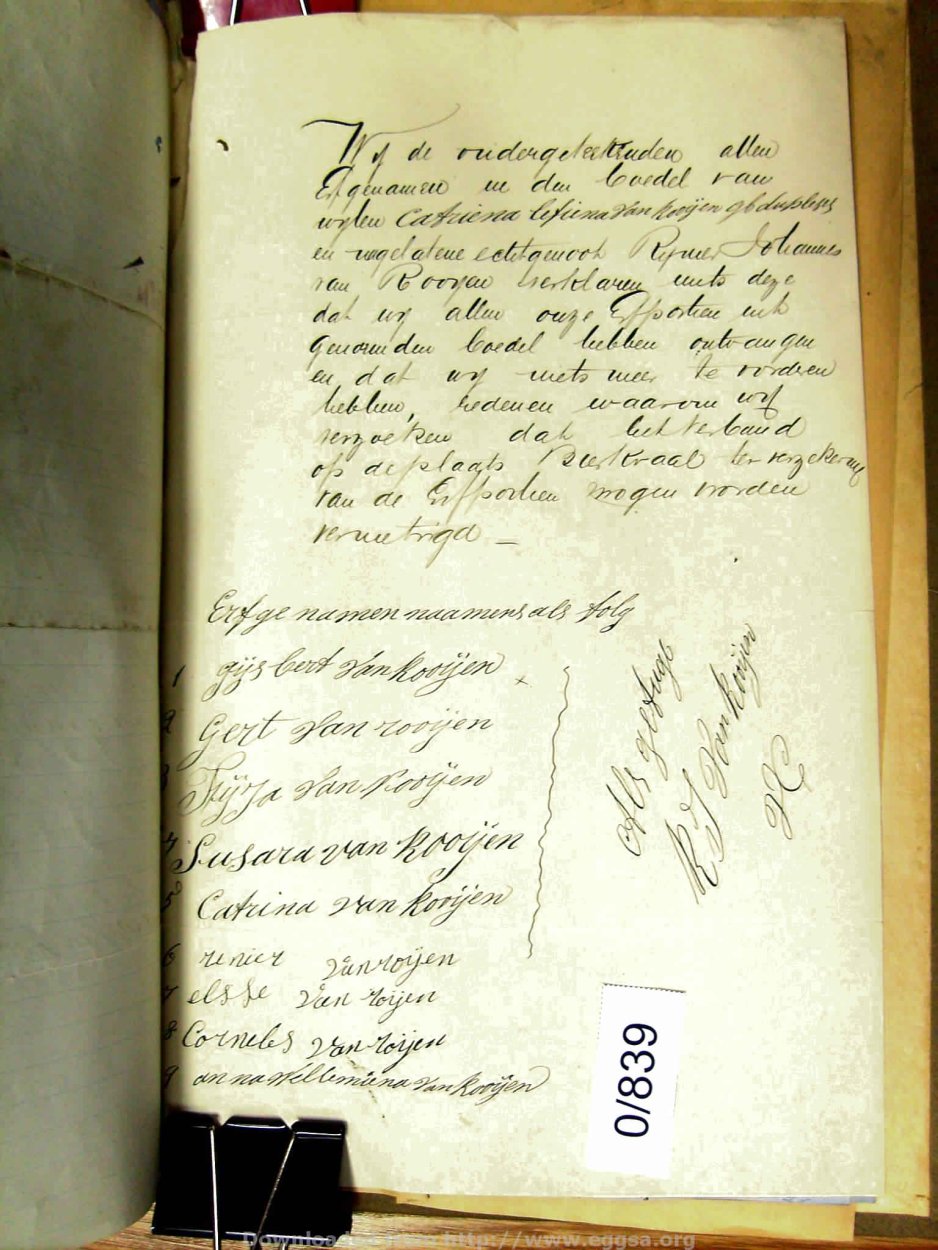 Wij de ondergeteekenden allen
Erfgenamen in den boedel van
wylen Catriena Lefiena van Rooÿen gb duplesis
en nagelatene echtgenoot Rynier Johannes
van Rooyen verklaren mits deze
dat wij allen onze Erfportien uit
genoemden boedel hebben ontvangen
en dat wij niets meer te vorderen
hebben, redenen waarom wij
verzoeken dat het verband
op de plaats ter verzekering
van de Erfportien mogen worden
vernietigd —
Erfge namen naamens als folg
1 gijsbert van Rooÿen x
2 Gert van rooÿen
3 van Rooÿen
4 Susara van Rooÿen
5 Catrina van Rooÿen
6 renier van roijen
7 elsse van roijen
8 Corneles van roijen
9 anna willemiena van Rooÿen
Als getuge
R J van Rooÿen
0/839
Downloaded from http://www.eggsa.org